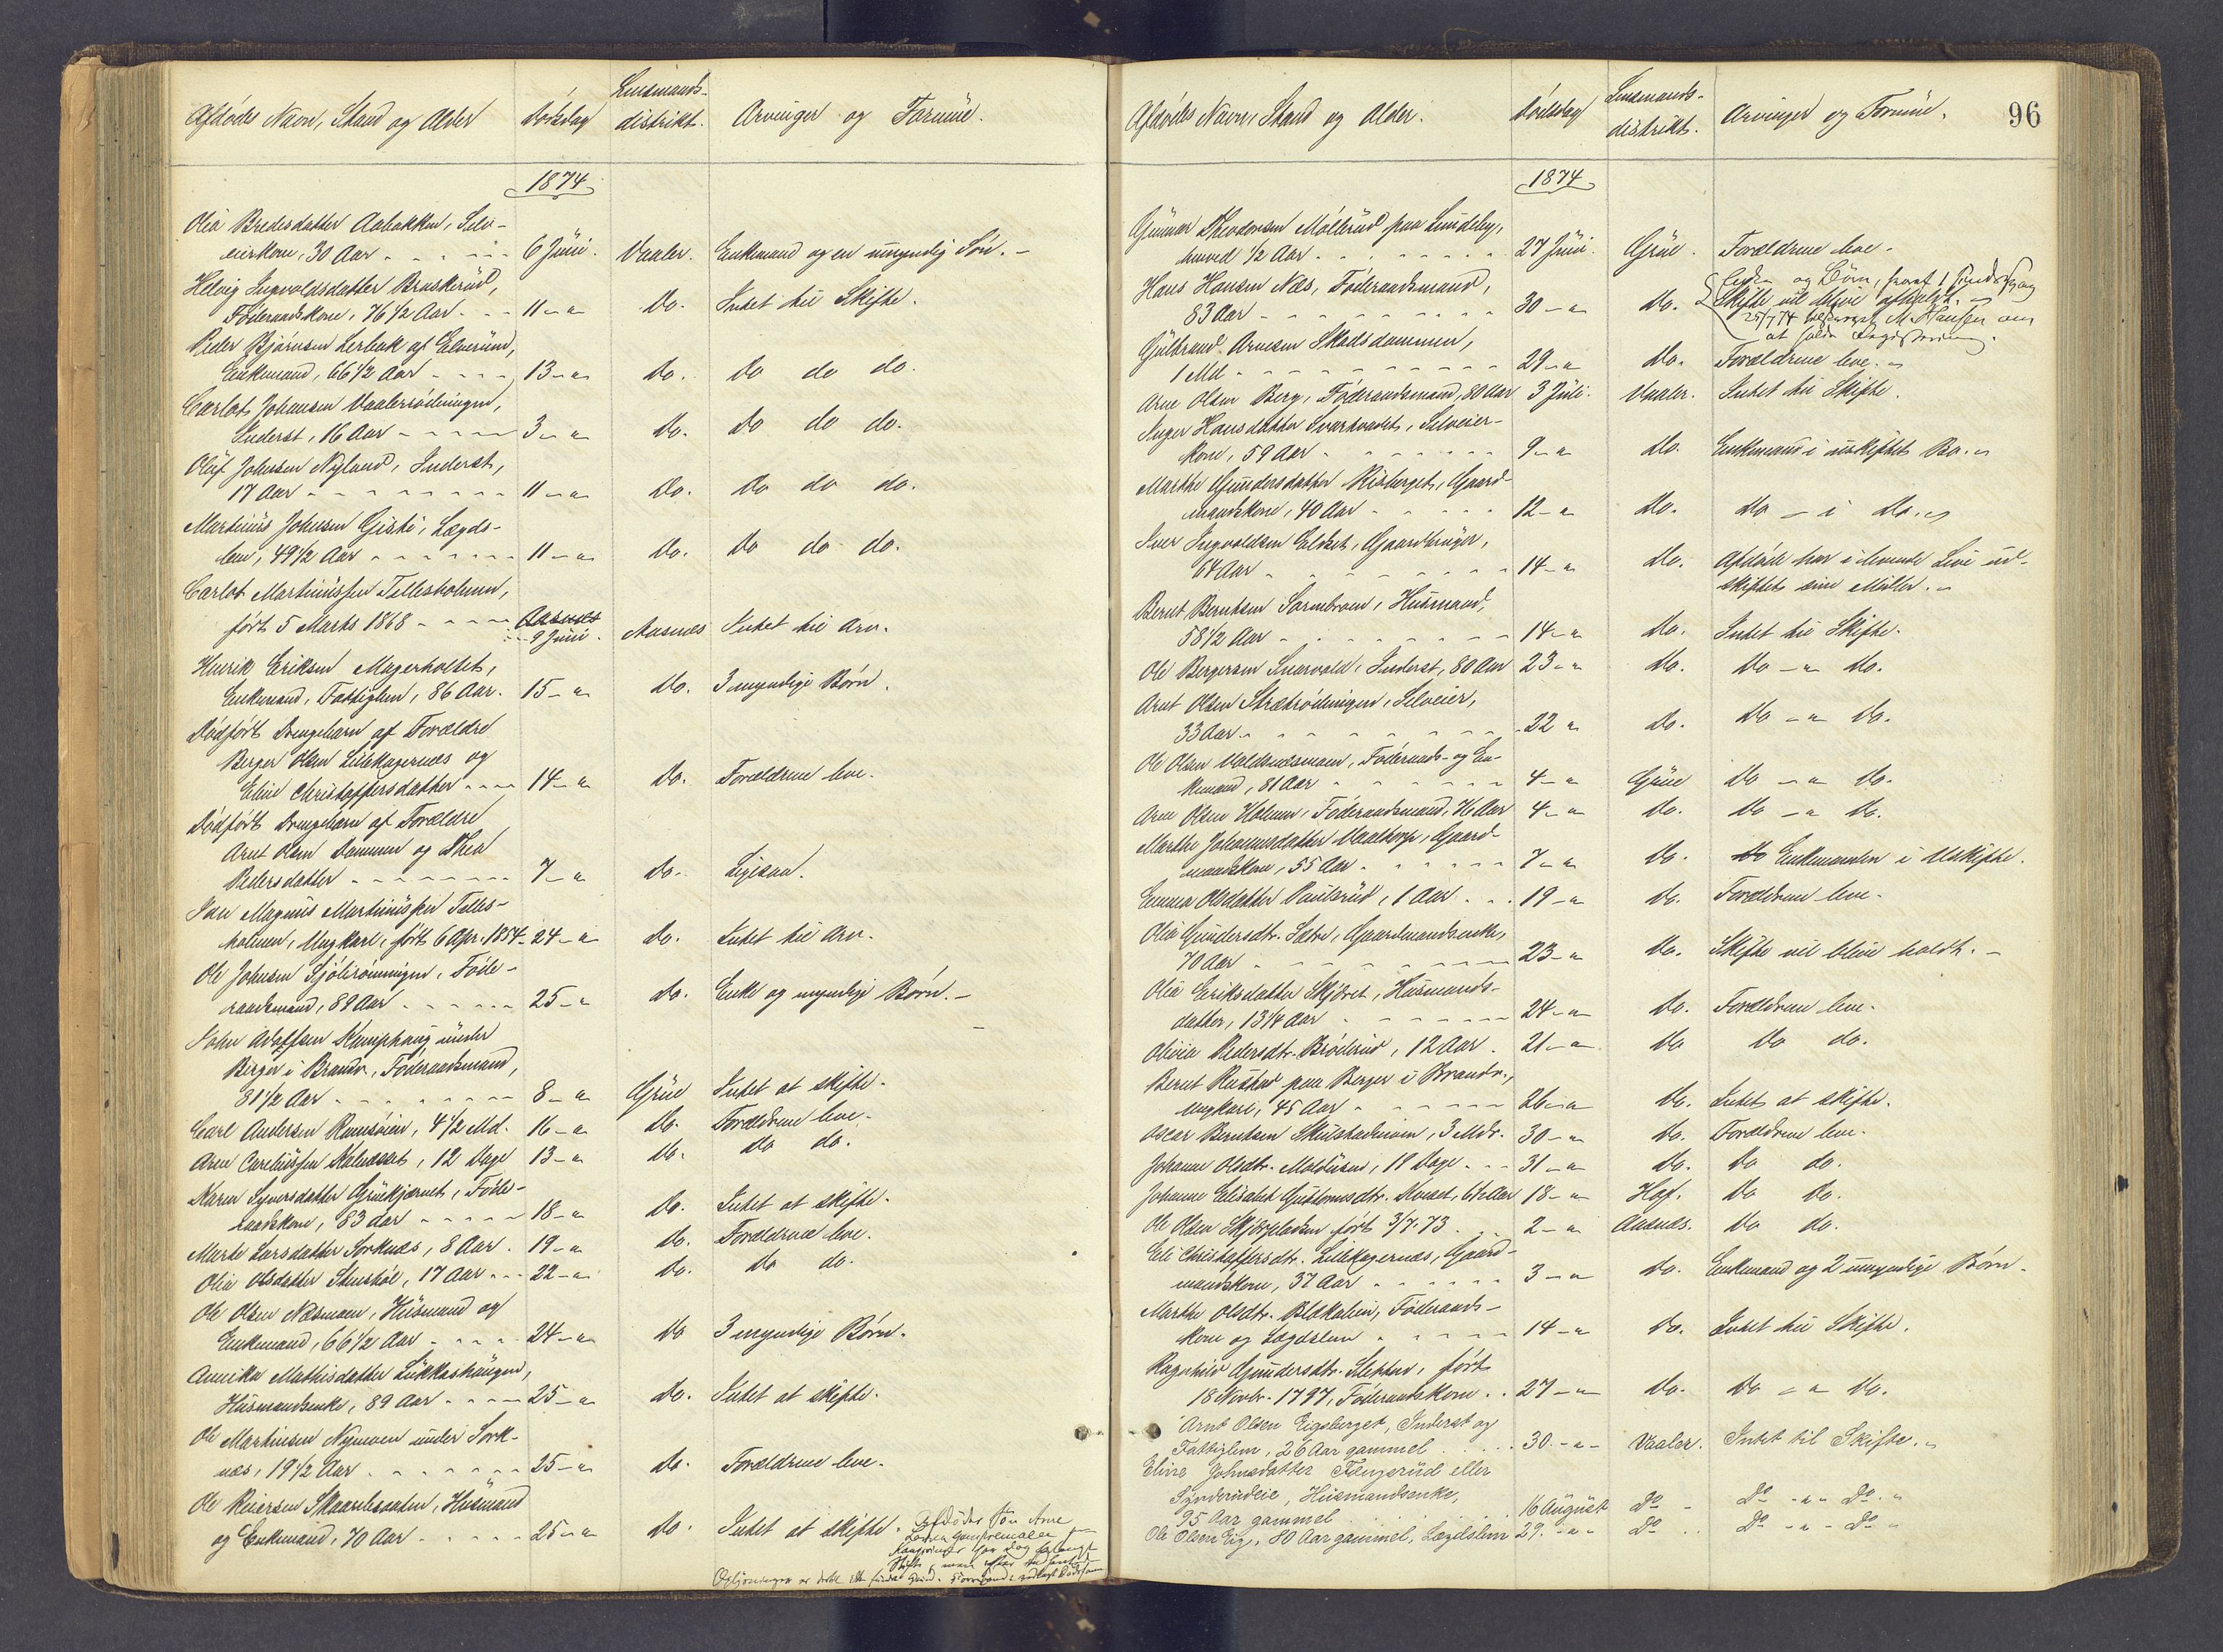 Afdødes Navn, Stand og Alder
Dödsdag
Lensmands-
distrikt.
Arvinger og Formue.
1874
Olea Bredesdatter Aabakken, Selv-
eierkone, 30 Aar 6 Juni. Vaaler. Enkemand og en umyndig Søn.
Helvig Ingvoldsdatter Braskerud,
Føderaadskone, 76 1/2 Aar 11 - " - Do. Intet til Skifte.
Peder Bjørnsen Lerbak af Elverum,
Enkemand, 66 1/2 Aar 13 - " Do. Do do do.
Carlot Johansen Vaalerrödningen,
Inderst, 16 Aar 3 - " Do. Do do do.
Oluf Johnsen Nyland, Inderst,
17 Aar 11 - " Do. Do do do.
Martinus Johnsen Gjisti, Lægds-
lem, 49 1/2 Aar 11 - " Do. Do do do.
Carlot Martinussen Tellesholmen,
født 5 Marts 1868 Aasnes
9 Juni. Aasnes Intet til Arv.
Henrik Eriksen Magerholtet,
Enkemand, Fattiglem, 86 Aar. 15 - " Do. 3 myndige Børn.
Dødfødt Drengebarn af Forældre
Berger Olsen Lillekagernæs og
Eline Christoffersdatter 14 - " Do. Forældrene leve.
Dødfødt Drengebarn af Forældre
Arnt Olsen Dammen og Thea
Pedersdatter 7 - " Do. Ligesaa.
Jan Magnus Martinussen Telles-
holmen, Ungkarl, født 6 Apr. 1854 24 - " Do. Intet til Arv.
Ole Johnsen Sjölirönningen, Føde-
raadsmand, 89 Aar 25 - " Do. Enke og myndige Børn.
John Adolfsen Kamphaug under
Berger i Brandv., Føderaadsmand,
81 1/2 Aar 8 - " Grue Intet at skifte.
Carl Andersen Ramsøien, 4 1/2 Md. 16 - " Do. Forældrene leve.
Arne Careliussen Kalnæsset, 12 Dage 13 - " Do. Do do.
Karen Syversdatter Gruekjærnet, Føde-
raadskone, 83 Aar 18 - " Do. Intet at skifte.
Marte Larsdatter Sorknæs, 8 Aar. 19 - " Do. Forældrene leve.
Olia Olsdatter Stensböl, 17 Aar 22 - " Do. Do do.
Ole Olsen Næsmoen, Husmand og
Enkemand, 66 1/2 Aar 24 - " Do 3 myndige Børn.
Annika Mathisdatter Lukkashaugen,
Husmandsenke, 89 Aar 25 - " Do. Intet at skifte.
Ole Martinsen Nymoen under Sork-
næs, 19 1/2 Aar 25 - " Do. Forældrene leve.
Ole Reiersen Skaarebraaten, Husmand
og Enkemand, 70 Aar 25 - " Do. Intet at skifte. Afdødes Søn Arne
har dog forlangt
Skifte, men efter
Oplysninger er dertil ikke fundet Grund.
96
Afdødes Navn, Stand og Alder.
Dødsdag
Lensmands-
distrikt.
Arvinger og Formue.
1874
Gunnar Theodorsen Möllerud paa Lundeby,
henved 1/2 Aar 27 Juni. Grue. Forældrene leve.
Hans Hansen Næs, Føderaadsmand,
83 Aar 30 - " Do. og Børn, hvoraf 1
Skifte vil blive afholdt.
25/7 74 M. Hansen om
at holde Registrering.
Gulbrand Arnesen Skadsdammen,
1 Md 29 - " Do. Forældrene leve.
Arne Olsen Berg, Føderaadsmand, 80 Aar 3 Juli. Vaaler. Intet til Skifte.
Inger Hansdatter Svartvadet, Selveier-
kone, 59 Aar 9 - " Do. Enkemand i uskiftet Bo.
Marthe Gundersdatter Risberget, Gaard-
mandskone, 40 Aar 12 - " Do. Do - i Do.
Iver Ingvoldsen Eldset, Gaardbruger,
64 Aar 14 - " Do. Afdøde har i levende Live ud-
skiftet sine Midler.
Bernt Berntsen Sormbroen, Husmand,
58 1/2 Aar 14 - " Do. Intet til Skifte.
Ole Bergersen Snarvold, Inderst, 80 Aar 23 - " Do. Do - " Do.
Arnt Olsen Strætrödningen, Selveier,
33 Aar 22 " Do. Do - " Do.
Ole Olsen Voldsnæsmoen, Føderaads- og En-
kemand, 81 Aar 4 - " Grue Do - " Do.
Arne Olsen Holmen, Føderaadsmand, 76 Aar 4 - " Do. Do - " Do.
Marthe Johannesdatter Vaaltorp, Gaard-
mandskone, 55 Aar 7 - " Do. Do Enkemanden i Uskifte.
Emma Olsdatter Poulsrud, 1 Aar 19 - " Do. Forældrene leve.
Olia Gundersdtr. Sætre, Gaardmandsenke,
70 Aar 23 - " Do. Skifte vil blive holdt.
Olia Eriksdatter Skjæret, Husmands-
datter, 13 1/4 Aar 24 - " Do. Forældrene leve.
Olivia Pedersdtr. Bröderud, 12 Aar. 21 - " Do Do do.
Bernt Rustad paa Berger i Brandv.,
Ungkarl, 45 Aar 26 - " Do. Intet at skifte.
Oscar Berntsen Skulstadmoen, 3 Mdr. 30 - " Do. Forældrene leve.
Johanne Olsdtr. Moldusen, 18 Dage 31 - " Do. Do do.
Johanne Elisabet Gustavesdtr. Moset, 6 1/2 Aar 18 - " Hof. Do Do.
Ole Olsen Skjærpladsen født 3/7 73 2 - " Aasnes. Do do.
Eli Christoffersdtr. Lillekagernæs, Gaard-
mandskone, 37 Aar 3 - " Do. Enkemand og 2 umyndige Børn.
Marthe Olsdtr. Blekalien, Føderaads-
kone og Lægdslem 14 - " Do. Intet til Skifte.
Ragnhild Gundersdtr. Sletten, født
18 Novbr. 1797, Føderaadskone 27 - " Do. Do - " Do.
Arnt Olsen Eigsberget, Inderst og
Fattiglem, 26 Aar gammel 30. - " - Vaaler. Intet til Skifte.
Eline Johnsdatter Fængerud eller
Sønderudeie, Husmandsenke,
95 Aar gammel 16 August Do - Do - " - Do. "
Ole Olsen Eig, 80 Aar gammel, Lægdslem 29. - " - Do Do - " - Do "